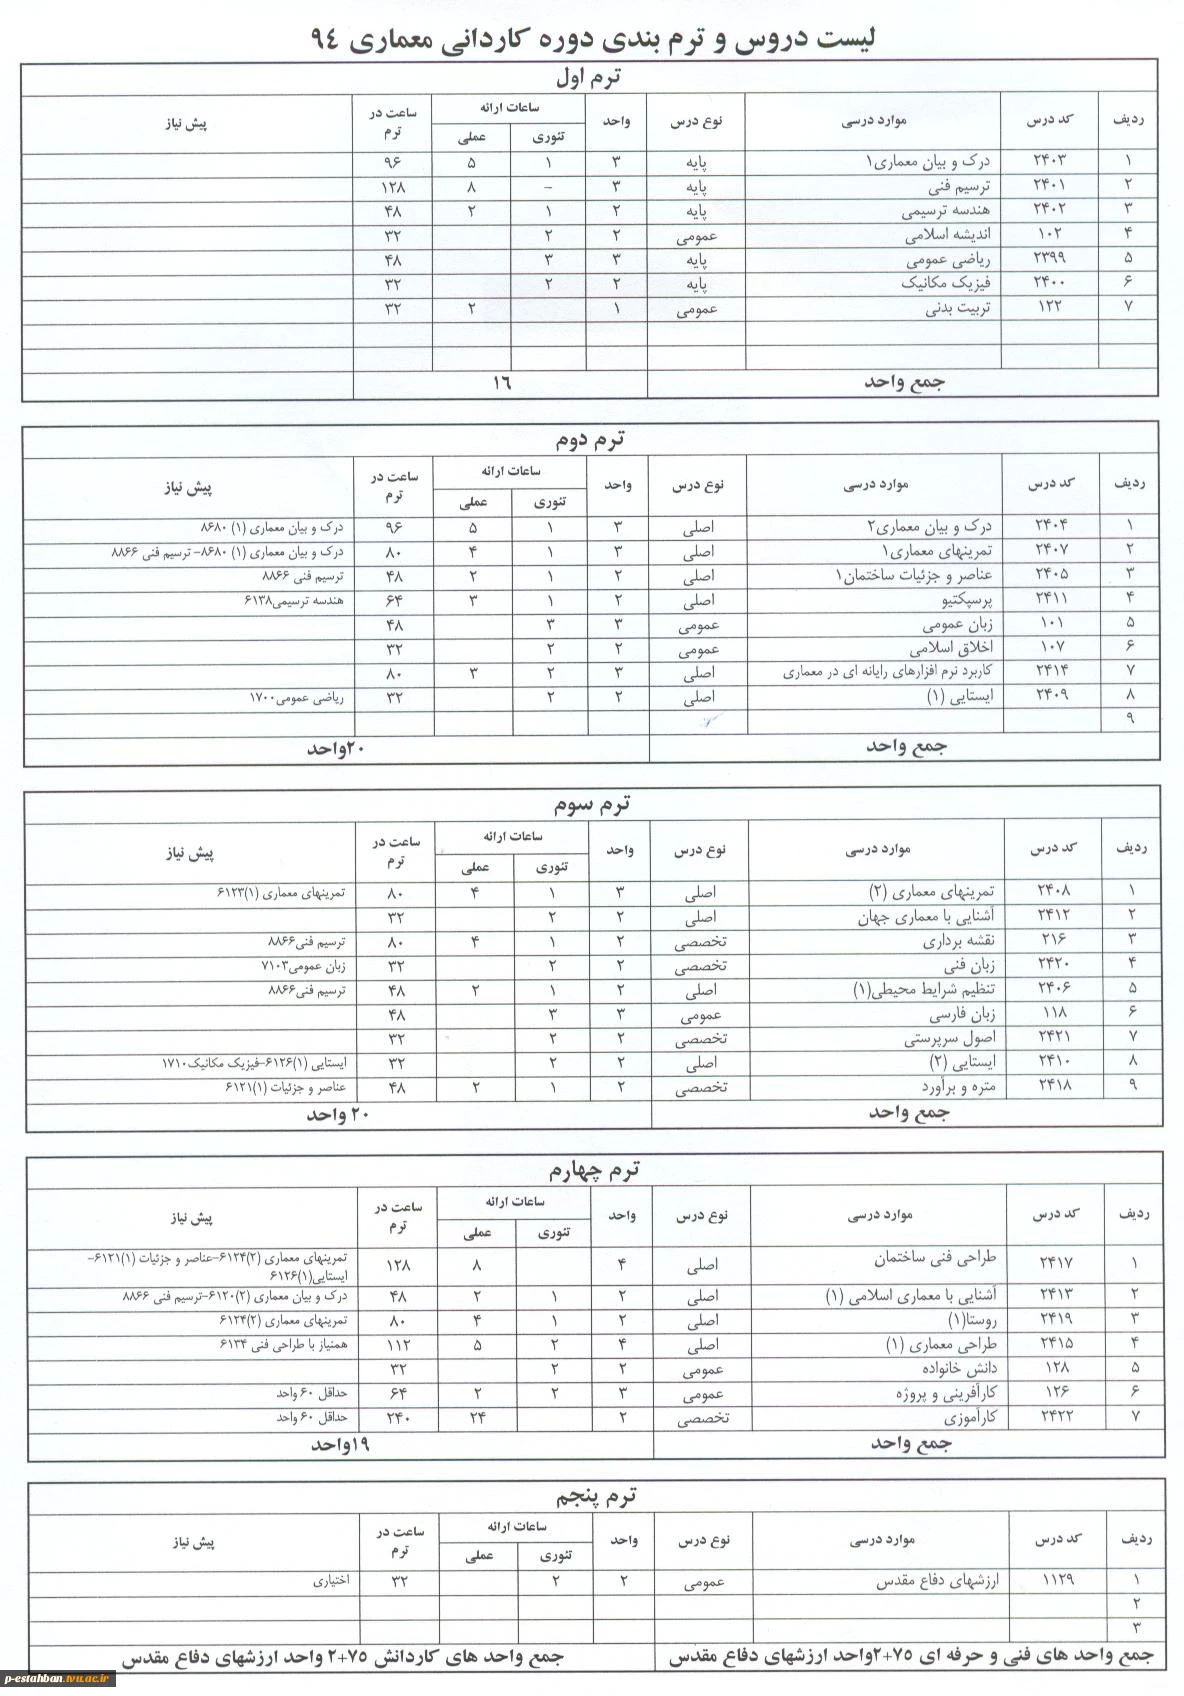 لیست دروس و ترم بندی دوره کاردانی معماری ۹۴
ترم اول
ردیف کد درس موارد درسی نوع درس واحد ساعات ارائه تئوری عملی ساعت در ترم پیش نیاز
۱ ۲۴۰۳ درک و بیان معماری۱ پایه ۳ ۱ ۵ ۹۶
۲ ۲۴۰۱ ترسیم فنی پایه ۳ - ۸ ۱۲۸
۳ ۲۴۰۲ هندسه ترسیمی پایه ۲ ۱ ۲ ۴۸
۴ ۱۰۲ اندیشه اسلامی عمومی ۲ ۲ ۳۲
۵ ۲۳۹۹ ریاضی عمومی پایه ۳ ۳ ۴۸
۶ ۲۴۰۰ فیزیک مکانیک پایه ۲ ۲ ۳۲
۷ ۱۲۲ تربیت بدنی عمومی ۱ ۲ ۳۲
جمع واحد ۱۶
ترم دوم
ردیف کد درس موارد درسی نوع درس واحد ساعات ارائه تئوری عملی ساعت در ترم پیش نیاز
۱ ۲۴۰۴ درک و بیان معماری۲ اصلی ۳ ۱ ۵ ۹۶ درک و بیان معماری (۱) ۸۶۸۰
۲ ۲۴۰۷ تمرینهای معماری۱ اصلی ۳ ۱ ۴ ۸۰ درک و بیان معماری (۱) ۸۶۸۰- ترسیم فنی ۸۸۶۶
۳ ۲۴۰۵ عناصر و جزئیات ساختمان۱ اصلی ۲ ۱ ۲ ۴۸ ترسیم فنی ۸۸۶۶
۴ ۲۴۱۱ پرسپکتیو اصلی ۲ ۱ ۳ ۶۴ هندسه ترسیمی۶۱۳۸
۵ ۱۰۱ زبان عمومی عمومی ۳ ۳ ۴۸
۶ ۱۰۷ اخلاق اسلامی عمومی ۲ ۲ ۳۲
۷ ۲۴۱۴ کاربرد نرم افزارهای رایانه ای در معماری اصلی ۳ ۲ ۳ ۸۰
۸ ۲۴۰۹ ایستایی (۱) اصلی ۲ ۲ ۳۲ ریاضی عمومی۱۷۰۰
۹
جمع واحد ۲۰واحد
ترم سوم
ردیف کد درس موارد درسی نوع درس واحد ساعات ارائه تئوری عملی ساعت در ترم پیش نیاز
۱ ۲۴۰۸ تمرینهای معماری (۲) اصلی ۳ ۱ ۴ ۸۰ تمرینهای معماری (۱)۶۱۲۳
۲ ۲۴۱۲ آشنایی با معماری جهان اصلی ۲ ۲ ۳۲
۳ ۲۱۶ نقشه برداری تخصصی ۲ ۱ ۴ ۸۰ ترسیم فنی۸۸۶۶
۴ ۲۴۲۰ زبان فنی تخصصی ۲ ۲ ۳۲ زبان عمومی۷۱۰۳
۵ ۲۴۰۶ تنظیم شرایط محیطی(۱) اصلی ۲ ۱ ۲ ۴۸ ترسیم فنی۸۸۶۶
۶ ۱۱۸ زبان فارسی عمومی ۳ ۳ ۴۸
۷ ۲۴۲۱ اصول سرپرستی تخصصی ۲ ۲ ۳۲
۸ ۲۴۱۰ ایستایی (۲) اصلی ۲ ۲ ۳۲ ایستایی (۱)۶۱۲۶-فیزیک مکانیک۱۷۱۰
۹ ۲۴۱۸ متره و برآورد تخصصی ۲ ۱ ۲ ۴۸ عناصر و جزئیات (۱)۶۱۲۱
جمع واحد ۲۰ واحد
ترم چهارم
ردیف کد درس موارد درسی نوع درس واحد ساعات ارائه تئوری عملی ساعت در ترم پیش نیاز
۱ ۲۴۱۷ طراحی فنی ساختمان اصلی ۴ ۸ ۱۲۸ تمرینهای معماری (۲)۶۱۲۴-عناصر و جزئیات (۱)۶۱۲۱-
ایستایی(۱)۶۱۲۶
۲ ۲۴۱۳ آشنایی با معماری اسلامی (۱) اصلی ۲ ۱ ۲ ۴۸ درک و بیان معماری (۲)۶۱۲۰-ترسیم فنی ۸۸۶۶
۳ ۲۴۱۹ روستا(۱) اصلی ۲ ۱ ۴ ۸۰ تمرینهای معماری (۲)۶۱۲۴
۴ ۲۴۱۵ طراحی معماری (۱) اصلی ۴ ۲ ۵ ۱۱۲ همنیاز با طراحی فنی ۶۱۳۴
۵ ۱۲۸ دانش خانواده عمومی ۲ ۲ ۳۲
۶ ۱۲۶ کارآفرینی و پروژه عمومی ۳ ۲ ۲ ۶۴ حداقل ۶۰ واحد
۷ ۲۴۲۲ کارآموزی تخصصی ۲ ۲۴ ۲۴۰ حداقل ۶۰ واحد
جمع واحد ۱۹واحد
ترم پنجم
ردیف کد درس موارد درسی نوع درس واحد ساعات ارائه تئوری عملی ساعت در ترم پیش نیاز
۱ ۱۱۲۹ ارزشهای دفاع مقدس عمومی ۲ ۲ ۳۲ اختیاری
۲
۳
جمع واحد های فنی و حرفه ای ۷۵+۲واحد ارزشهای دفاع مقدس جمع واحد های کاردانش ۷۵+۲ واحد ارزشهای دفاع مقدس
p-estahban.tvu.ac.ir